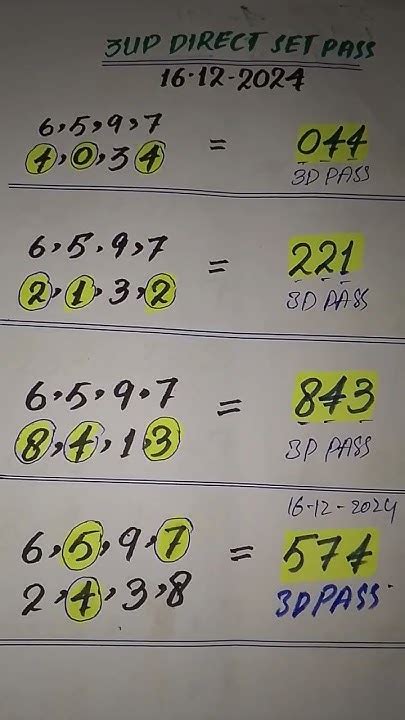 3UP DIRECT SET PASS
16-12-2024
6,5,9,7
4,0,3 4 = 044
3D PASS
6,5,9,7
2,1,3,2 = 221
3D PASS
6,5,9,7
8,4,1,3 = 843
3D PASS
16-12-2024
6,5,9,7 = 574
2,4,3,8
3D PASS